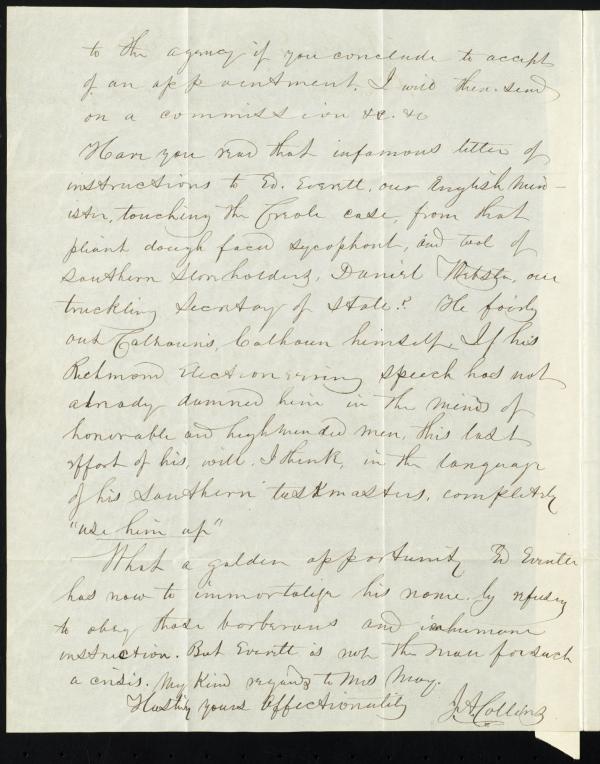 to the agency if you conclude to accept
of an appointment. I will then send
on a commission &c. &c
Have you read that infamous letter of
instructions to Ed. Everett, our English Min-
ister, touching the Creole case, from that
pliant dough faced sycophant, and tool of
Southern Slaveholders, Daniel Webster, our
truckling Secretary of State? He fairly
out Calhoun's, Calhoun himself. If his
Richmond electioneering speech has not
already damned him in the minds of
honorable and highminded men, this last
effort of his, will, I think, in the language
of his Southern taskmasters, completely
"use him up"
What a golden opportunity Ed Everett
has now to immortalize his name by refusing
to obey those barberous and inhumane
instruction. But Everett is not the man for such
a crisis. My kind regards to Mrs May.
Hastily yours affectionately J.A. Collins